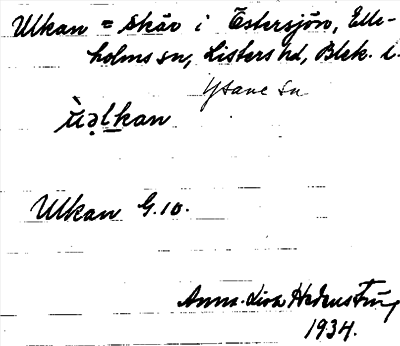 Ulkan = skär i Östersjön, Elle-
holms sn, Listers hd, Blek. l.
Ysane sn
ùəlkan
Ulkan G.10.
Anna-Lisa Hedenström
1934.